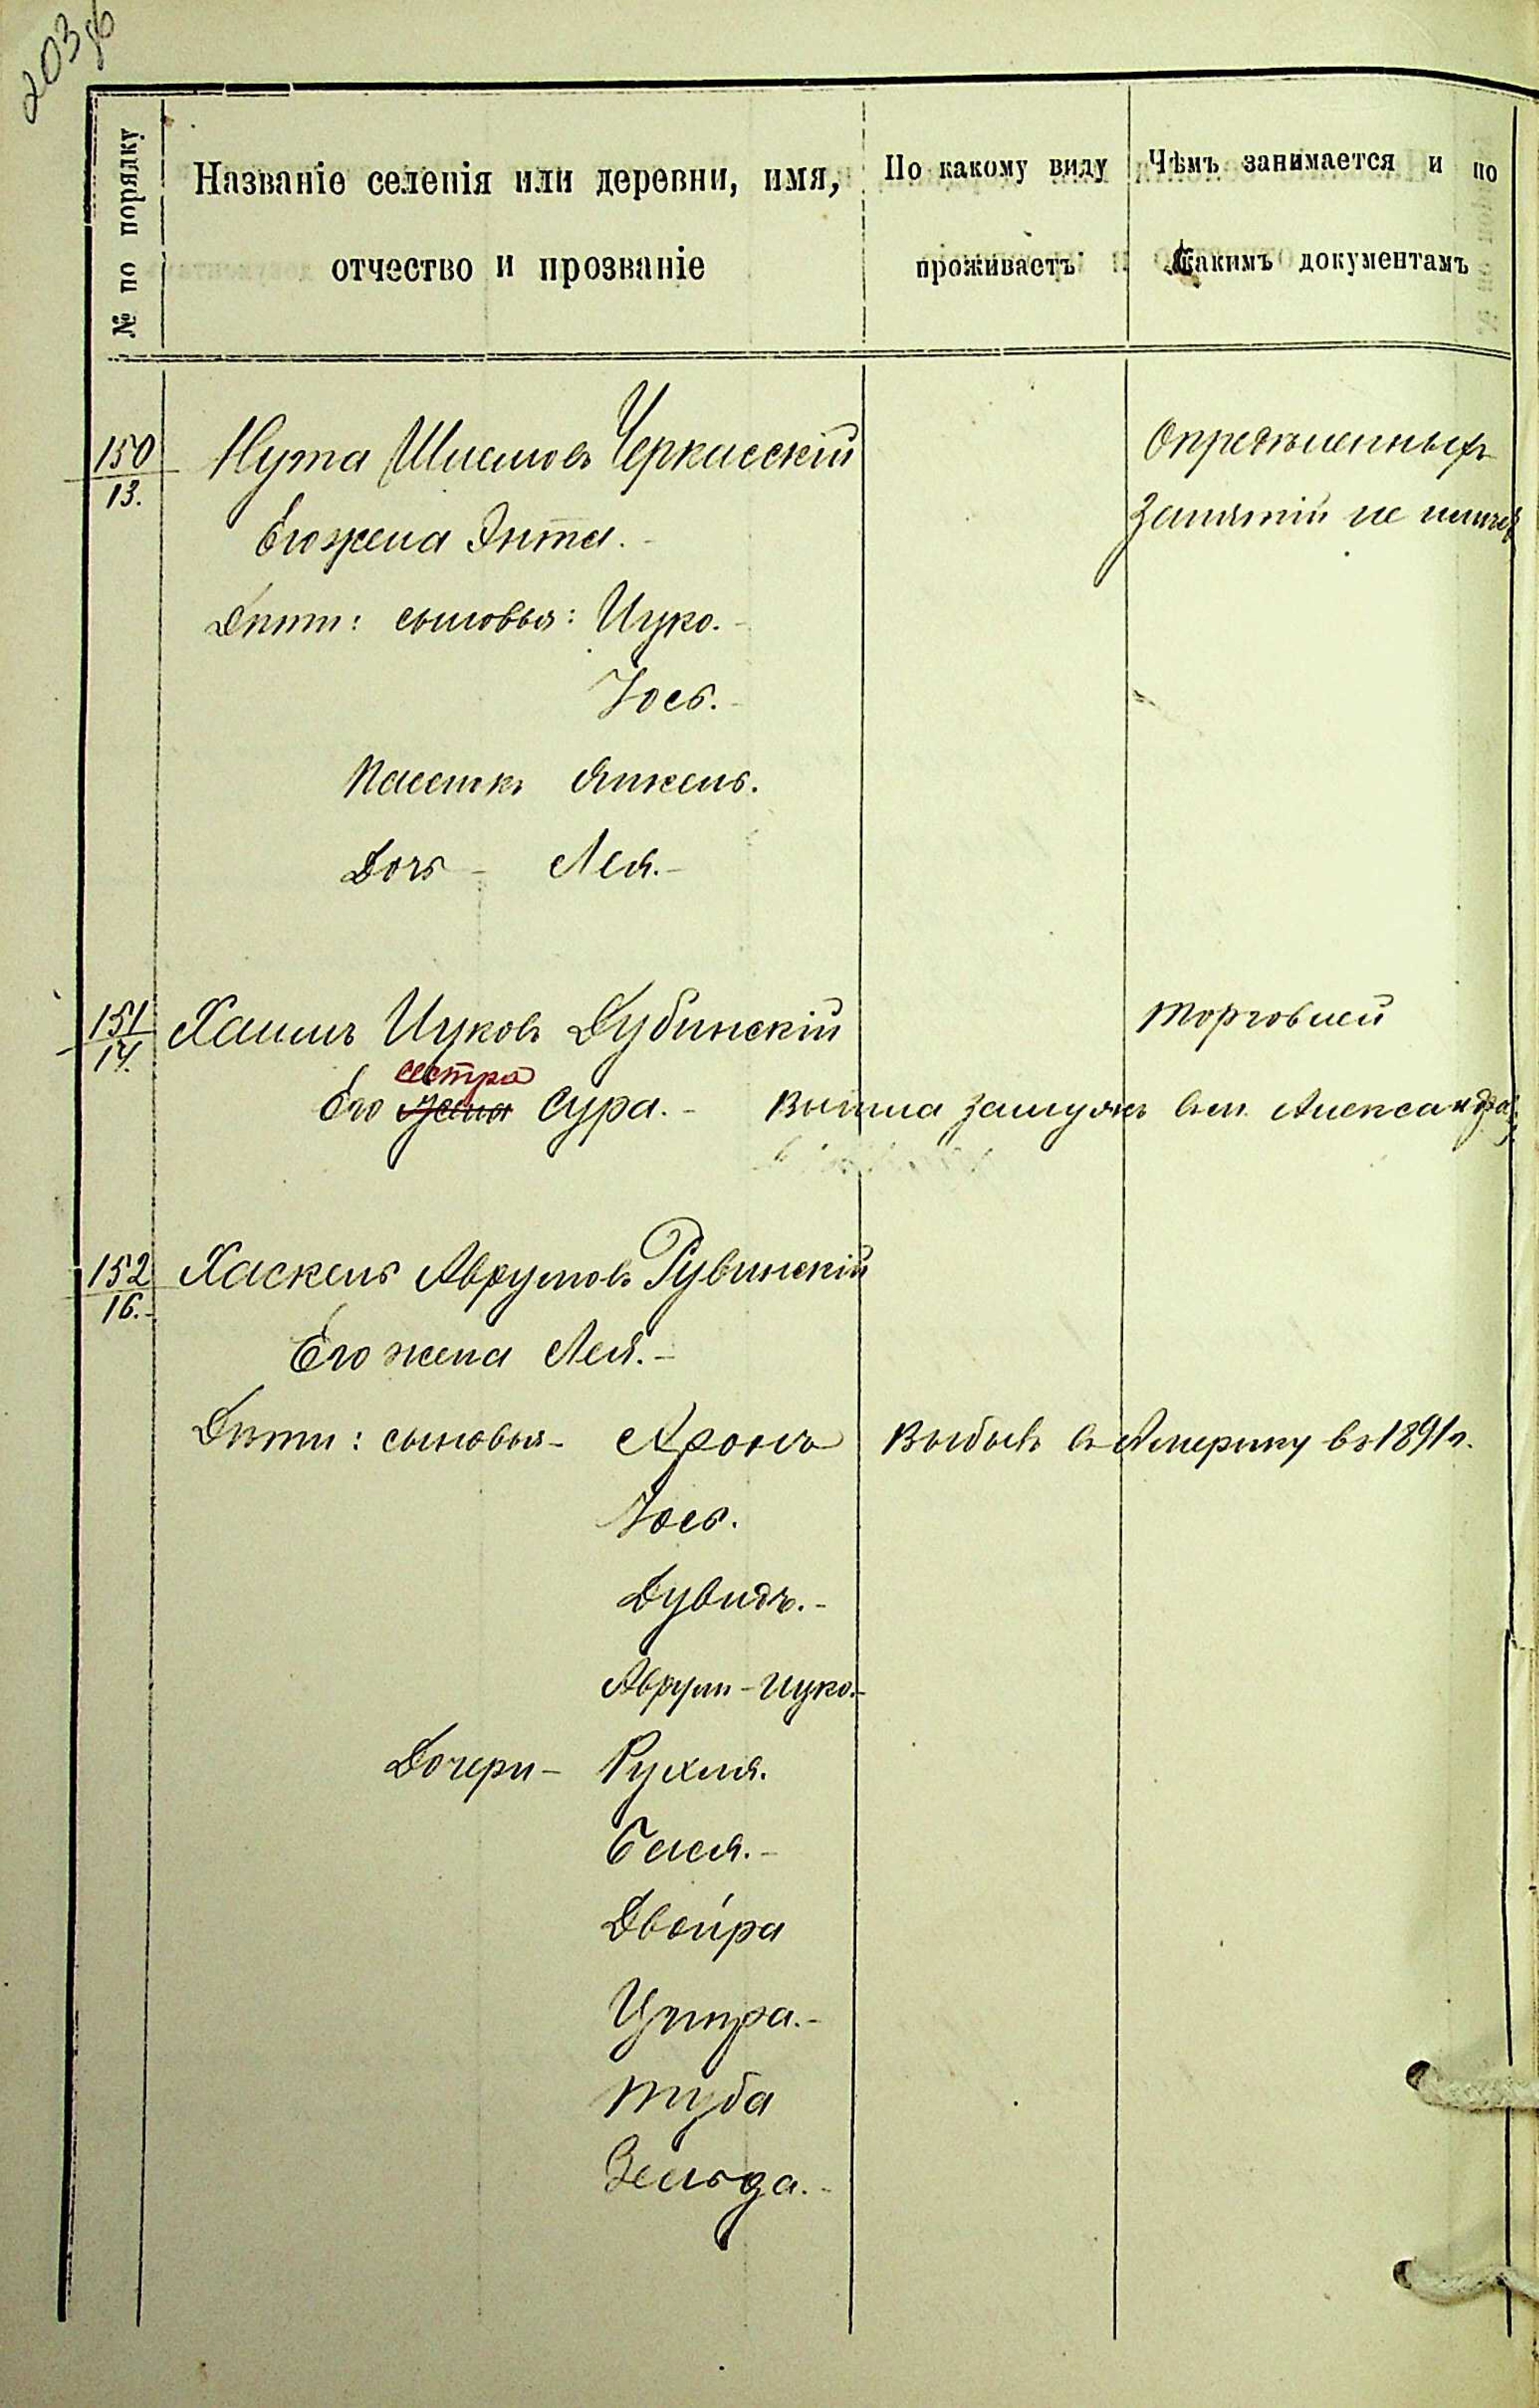 203 об
№ по порядку
Названіе селенія или деревни, имя,
отчество и прозваніе
По какому виду
проживаетъ
Чѣмъ занимается и по
какимъ документамъ
150
13.
Нута Шлемовъ Черкасскій
Опредѣленныхъ
Его жена Энта.
занятій не имѣе
Дѣти: сыновья: Ицко.
Іось.
Пасынкъ Янкель.
Дочь - Лея.
151
14.
Хаимъ Ицковъ Дубинскій
Торговлей
сестра
Его жена Сура. - Вышла замужъ в м. Александ
152
16.
Хаскель Аврумовъ Рувинскій
Его жена Лея.
Дѣти: сыновья - Аронъ Выбылъ въ Америку въ 1891 г.
Іось.
Дувидъ.
Аврум-Ицко.
Дочери - Рухля.
Бася.
Двойра
Ципра.
Туба
Зельда.